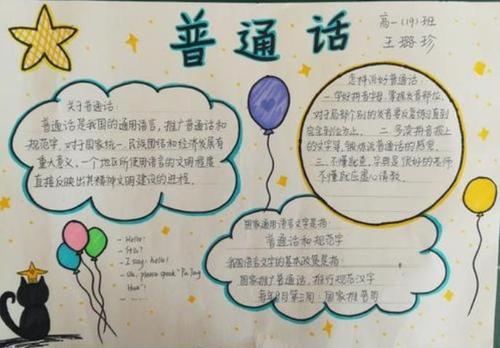 普通话
高一(19)班
王璐珍
关于普通话:
普通话是我国的通用语言,推广普通话和
规范字,对于国家统一、民族团结和经济发展有
重大意义,一个地区所使用语言的文明程度
直接反映出其精神文明建设的进程.
怎样说好普通话:
一.学好拼音字母,掌握发音部位,
对于局部个别的发音要反复练习直到
完全到位为止. 二.多读拼音报上
的文字等,锻炼说普通话的感觉.
三.不懂就查,字典是很好的老师
不懂就应虚心请教.
- Hello!
- Sir?
- I say: hello!
国家通用语言文字是指:
普通话和规范字
我国语言文字的基本政策是指:
国家推广普通话,推行规范汉字
每年9月第三周:国家推普周